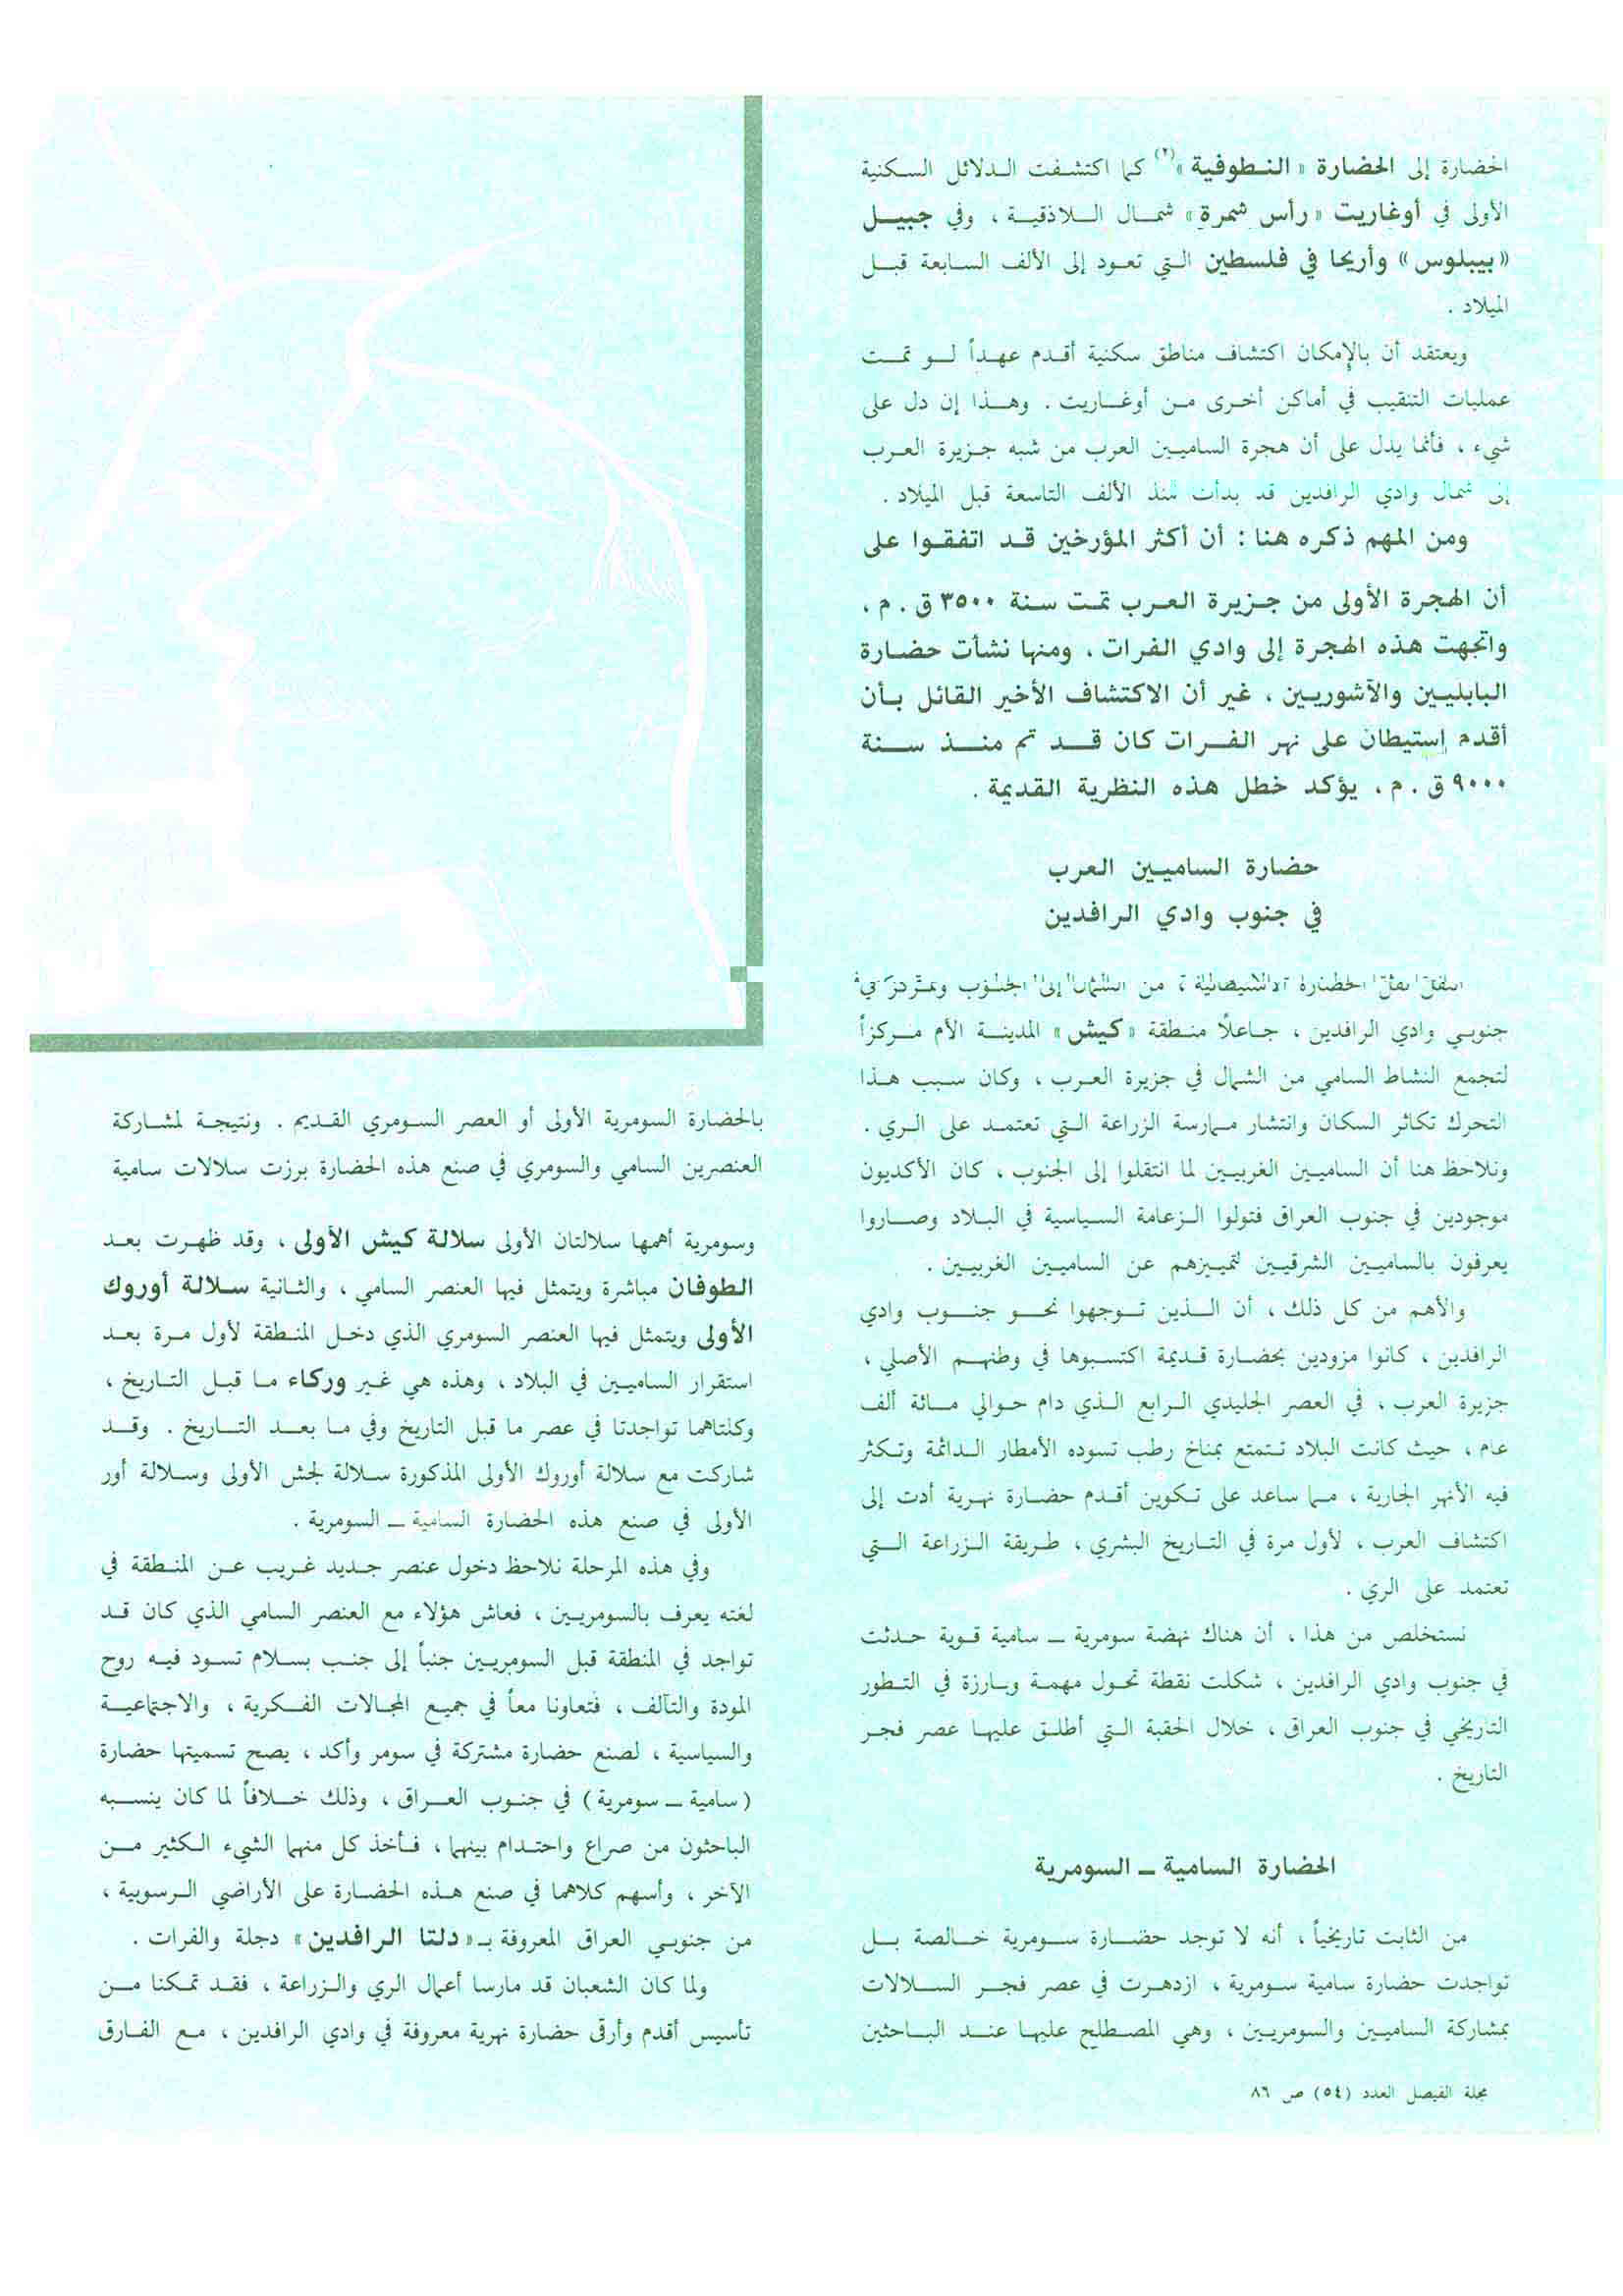 الحضارة إلى الحضارة «النطوفية»(٢) كما اكتشفت الدلائل السكنية
الأولى في أوغاريت «رأس شمرة» شمال اللاذقية ، وفي جبيل
«بيبلوس» وأريحا في فلسطين التي تعود إلى الألف السابعة قبل
الميلاد .
ويعتقد أن بالإمكان اكتشاف مناطق سكنية أقدم عهداً لو تمت
عمليات التنقيب في أماكن أخرى من أوغاريت . وهذا إن دل على
شيء ، فأنما يدل على أن هجرة الساميين العرب من شبه جزيرة العرب
إلى شمال وادي الرافدين قد بدأت منذ الألف التاسعة قبل الميلاد .
ومن المهم ذكره هنا : أن أكثر المؤرخين قد اتفقوا على
أن الهجرة الأولى من جزيرة العرب تمت سنة ٣٥٠٠ ق . م ،
واتجهت هذه الهجرة إلى وادي الفرات ، ومنها نشأت حضارة
البابليين والآشوريين ، غير أن الاكتشاف الأخير القائل بأن
أقدم إستيطان على نهر الفرات كان قد تم منذ سنة
٩٠٠٠ ق . م ، يؤكد خطل هذه النظرية القديمة .
حضارة الساميين العرب
في جنوب وادي الرافدين
الحضارة الاستيطانية ، من الشمال إلى الجنوب
جنوبي وادي الرافدين ، جاعلًا منطقة «كيش» المدينة الأم مركزاً
لتجمع النشاط السامي من الشمال في جزيرة العرب ، وكان سبب هذا
التحرك تكاثر السكان وانتشار ممارسة الزراعة التي تعتمد على الري .
ونلاحظ هنا أن الساميين الغربيين لما انتقلوا إلى الجنوب ، كان الأكديون
موجودين في جنوب العراق فتولوا الزعامة السياسية في البلاد وصاروا
يعرفون بالساميين الشرقيين لتمييزهم عن الساميين الغربيين .
والأهم من كل ذلك ، أن الذين توجهوا نحو جنوب وادي
الرافدين ، كانوا مزودين بحضارة قديمة اكتسبوها في وطنهم الأصلي ،
جزيرة العرب ، في العصر الجليدي الرابع الذي دام حوالي مائة ألف
عام ، حيث كانت البلاد تتمتع بمناخ رطب تسوده الأمطار الدائمة وتكثر
فيه الأنهر الجارية ، مما ساعد على تكوين أقدم حضارة نهرية أدت إلى
اكتشاف العرب ، لأول مرة في التاريخ البشري ، طريقة الزراعة التي
تعتمد على الري .
نستخلص من هذا ، أن هناك نهضة سومرية ــ سامية قوية حدثت
في جنوب وادي الرافدين ، شكلت نقطة تحول مهمة وبارزة في التطور
التاريخي في جنوب العراق ، خلال الحقبة التي أطلق عليها عصر فجر
التاريخ .
الحضارة السامية ــ السومرية
من الثابت تاريخياً ، أنه لا توجد حضارة سومرية خالصة بل
تواجدت حضارة سامية سومرية ، ازدهرت في عصر فجر السلالات
بمشاركة الساميين والسومريين ، وهي المصطلح عليها عند الباحثين
بالحضارة السومرية الأولى أو العصر السومري القديم . ونتيجة لمشاركة
العنصرين السامي والسومري في صنع هذه الحضارة برزت سلالات سامية
وسومرية أهمها سلالتان الأولى سلالة كيش الأولى ، وقد ظهرت بعد
الطوفان مباشرة ويتمثل فيها العنصر السامي ، والثانية سلالة أوروك
الأولى ويتمثل فيها العنصر السومري الذي دخل المنطقة لأول مرة بعد
استقرار الساميين في البلاد ، وهذه هي غير وركاء ما قبل التاريخ ،
وكلتاهما تواجدتا في عصر ما قبل التاريخ وفي ما بعد التاريخ . وقد
شاركت مع سلالة أوروك الأولى المذكورة سلالة لجش الأولى وسلالة أور
الأولى في صنع هذه الحضارة السامية ــ السومرية .
وفي هذه المرحلة نلاحظ دخول عنصر جديد غريب عن المنطقة في
لغته يعرف بالسومريين ، فعاش هؤلاء مع العنصر السامي الذي كان قد
تواجد في المنطقة قبل السومريين جنباً إلى جنب بسلام تسود فيه روح
المودة والتآلف ، فتعاونا معاً في جميع المجالات الفكرية ، والاجتماعية
والسياسية ، لصنع حضارة مشتركة في سومر وأكد ، يصح تسميتها حضارة
(سامية ــ سومرية) في جنوب العراق ، وذلك خلافاً لما كان ينسبه
الباحثون من صراع واحتدام بينهما ، فأخذ كل منهما الشيء الكثير من
الآخر ، وأسهم كلاهما في صنع هذه الحضارة على الأراضي الرسوبية ،
من جنوبي العراق المعروفة بـ «دلتا الرافدين» دجلة والفرات .
ولما كان الشعبان قد مارسا أعمال الري والزراعة ، فقد تمكنا من
تأسيس أقدم وأرقى حضارة نهرية معروفة في وادي الرافدين ، مع الفارق
مجلة الفيصل العدد (٥٤) ص ٨٦